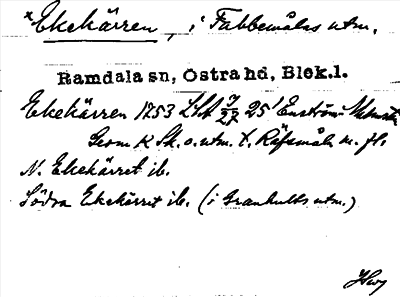 *Ekekärren, i Fabbemålas utm.
Ramdala sn, Östra hd, Blek.l.
Ekekärren 1753 LSA 25
Geom K Sk. o. utm. t. Räfsmåla m. fl.
N. Ekekärret ib.
Södra Ekekärret ib. (i Granhults utm.)